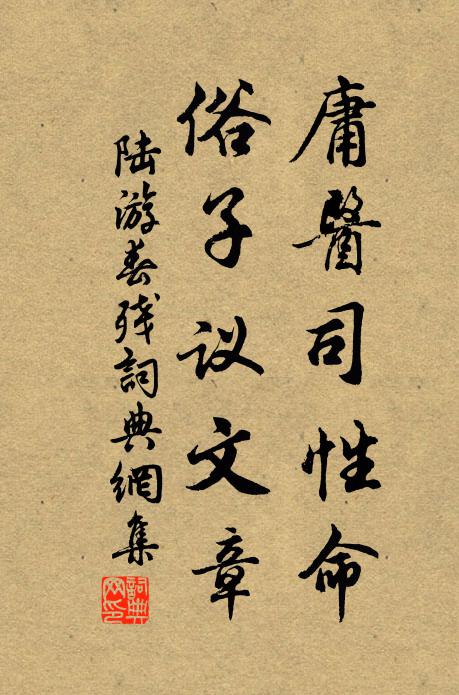 庸醫司性命
俗子议文章
陆游春残詞典網集
詞典
网印